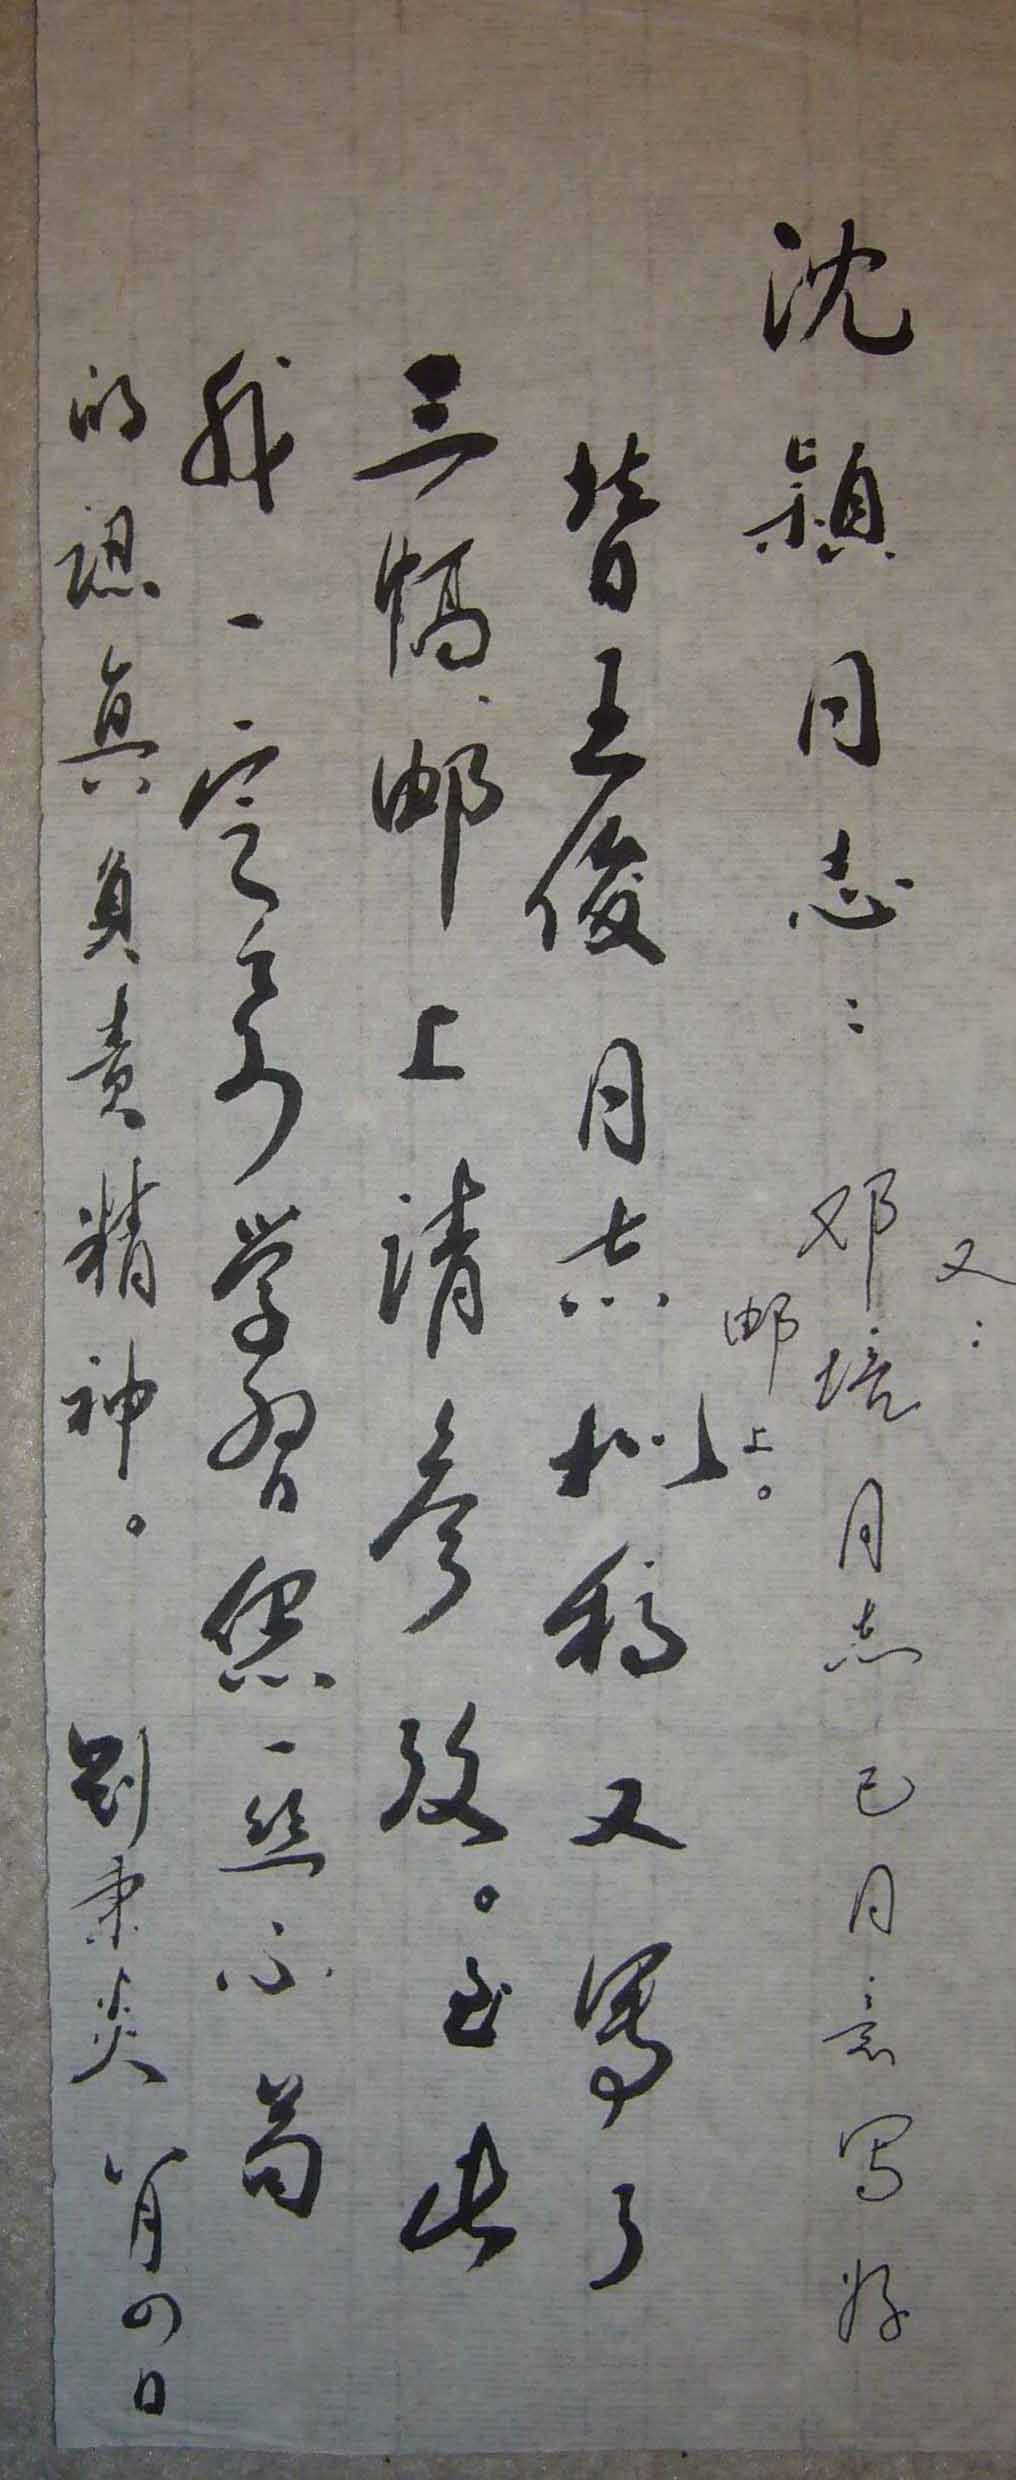 沈颖同志：
替王俊同志拟稿又写了
三幅邮上请参改。至此
我一定要学习您一丝不苟
的认真负责精神。
刘秉炎 八月四日
又：
邓培同志已同意写好
邮上。